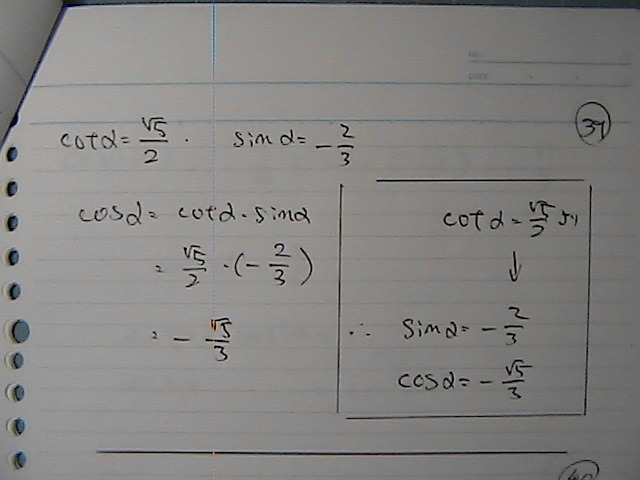 NO.
DATE
37
cotα = √5/2 . sinα = -2/3
cosα = cotα · sinα
= √5/2 · (-2/3)
= -√5/3
cotα = √5/2 より
↓
∴ sinα = -2/3
cosα = -√5/3